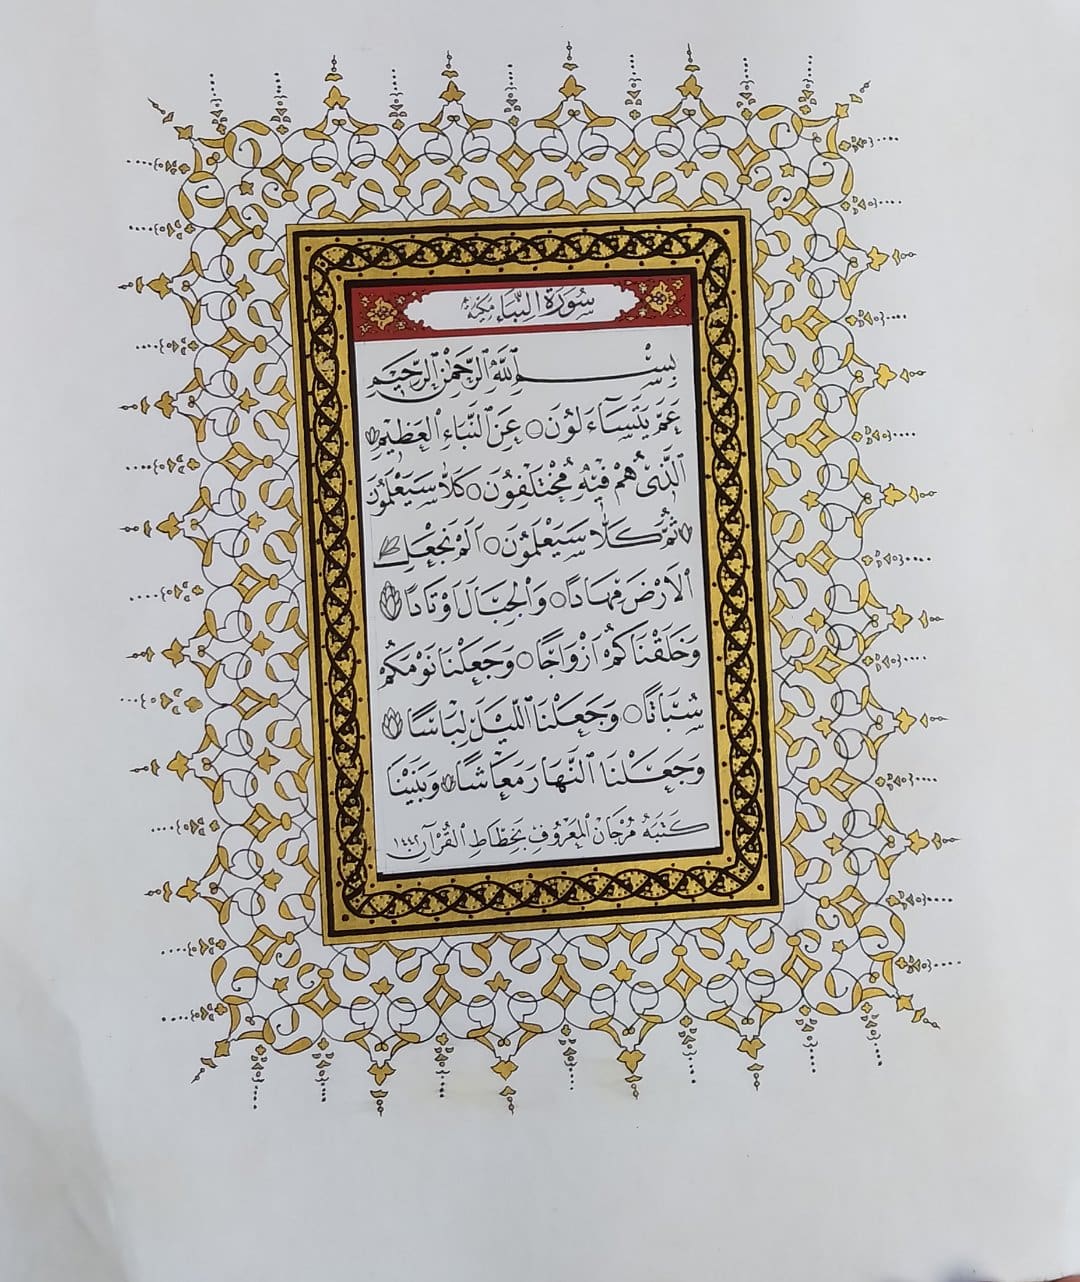 سُورَةُ النَّبَاءِ مَكِّيَّة
بِسْمِ ٱللَّهِ ٱلرَّحْمٰنِ ٱلرَّحِيمِ
عَمَّ يَتَسَآءَلُونَ ○ عَنِ ٱلنَّبَاءِ ٱلْعَظِيمِ
ٱلَّذِى هُمْ فِيهِ مُخْتَلِفُونَ ○ كَلَّا سَيَعْلَمُونَ
ثُمَّ كَلَّا سَيَعْلَمُونَ ○ اَلَمْ نَجْعَلِ
ٱلْاَرْضَ مِهَادًا ○ وَٱلْجِبَالَ اَوْتَادًا
وَخَلَقْنَاكُمْ اَزْوَاجًا ○ وَجَعَلْنَا نَوْمَكُمْ
سُبَاتًا ○ وَجَعَلْنَا ٱلَّيْلَ لِبَاسًا
وَجَعَلْنَا ٱلنَّهَارَ مَعَاشًا وَبَنَيْنَا
كَتَبَهُ مُرْجَان ٱلْمَعْرُوف بِخَطَّاطِ ٱلْقُرْآنِ ١٤٤٢